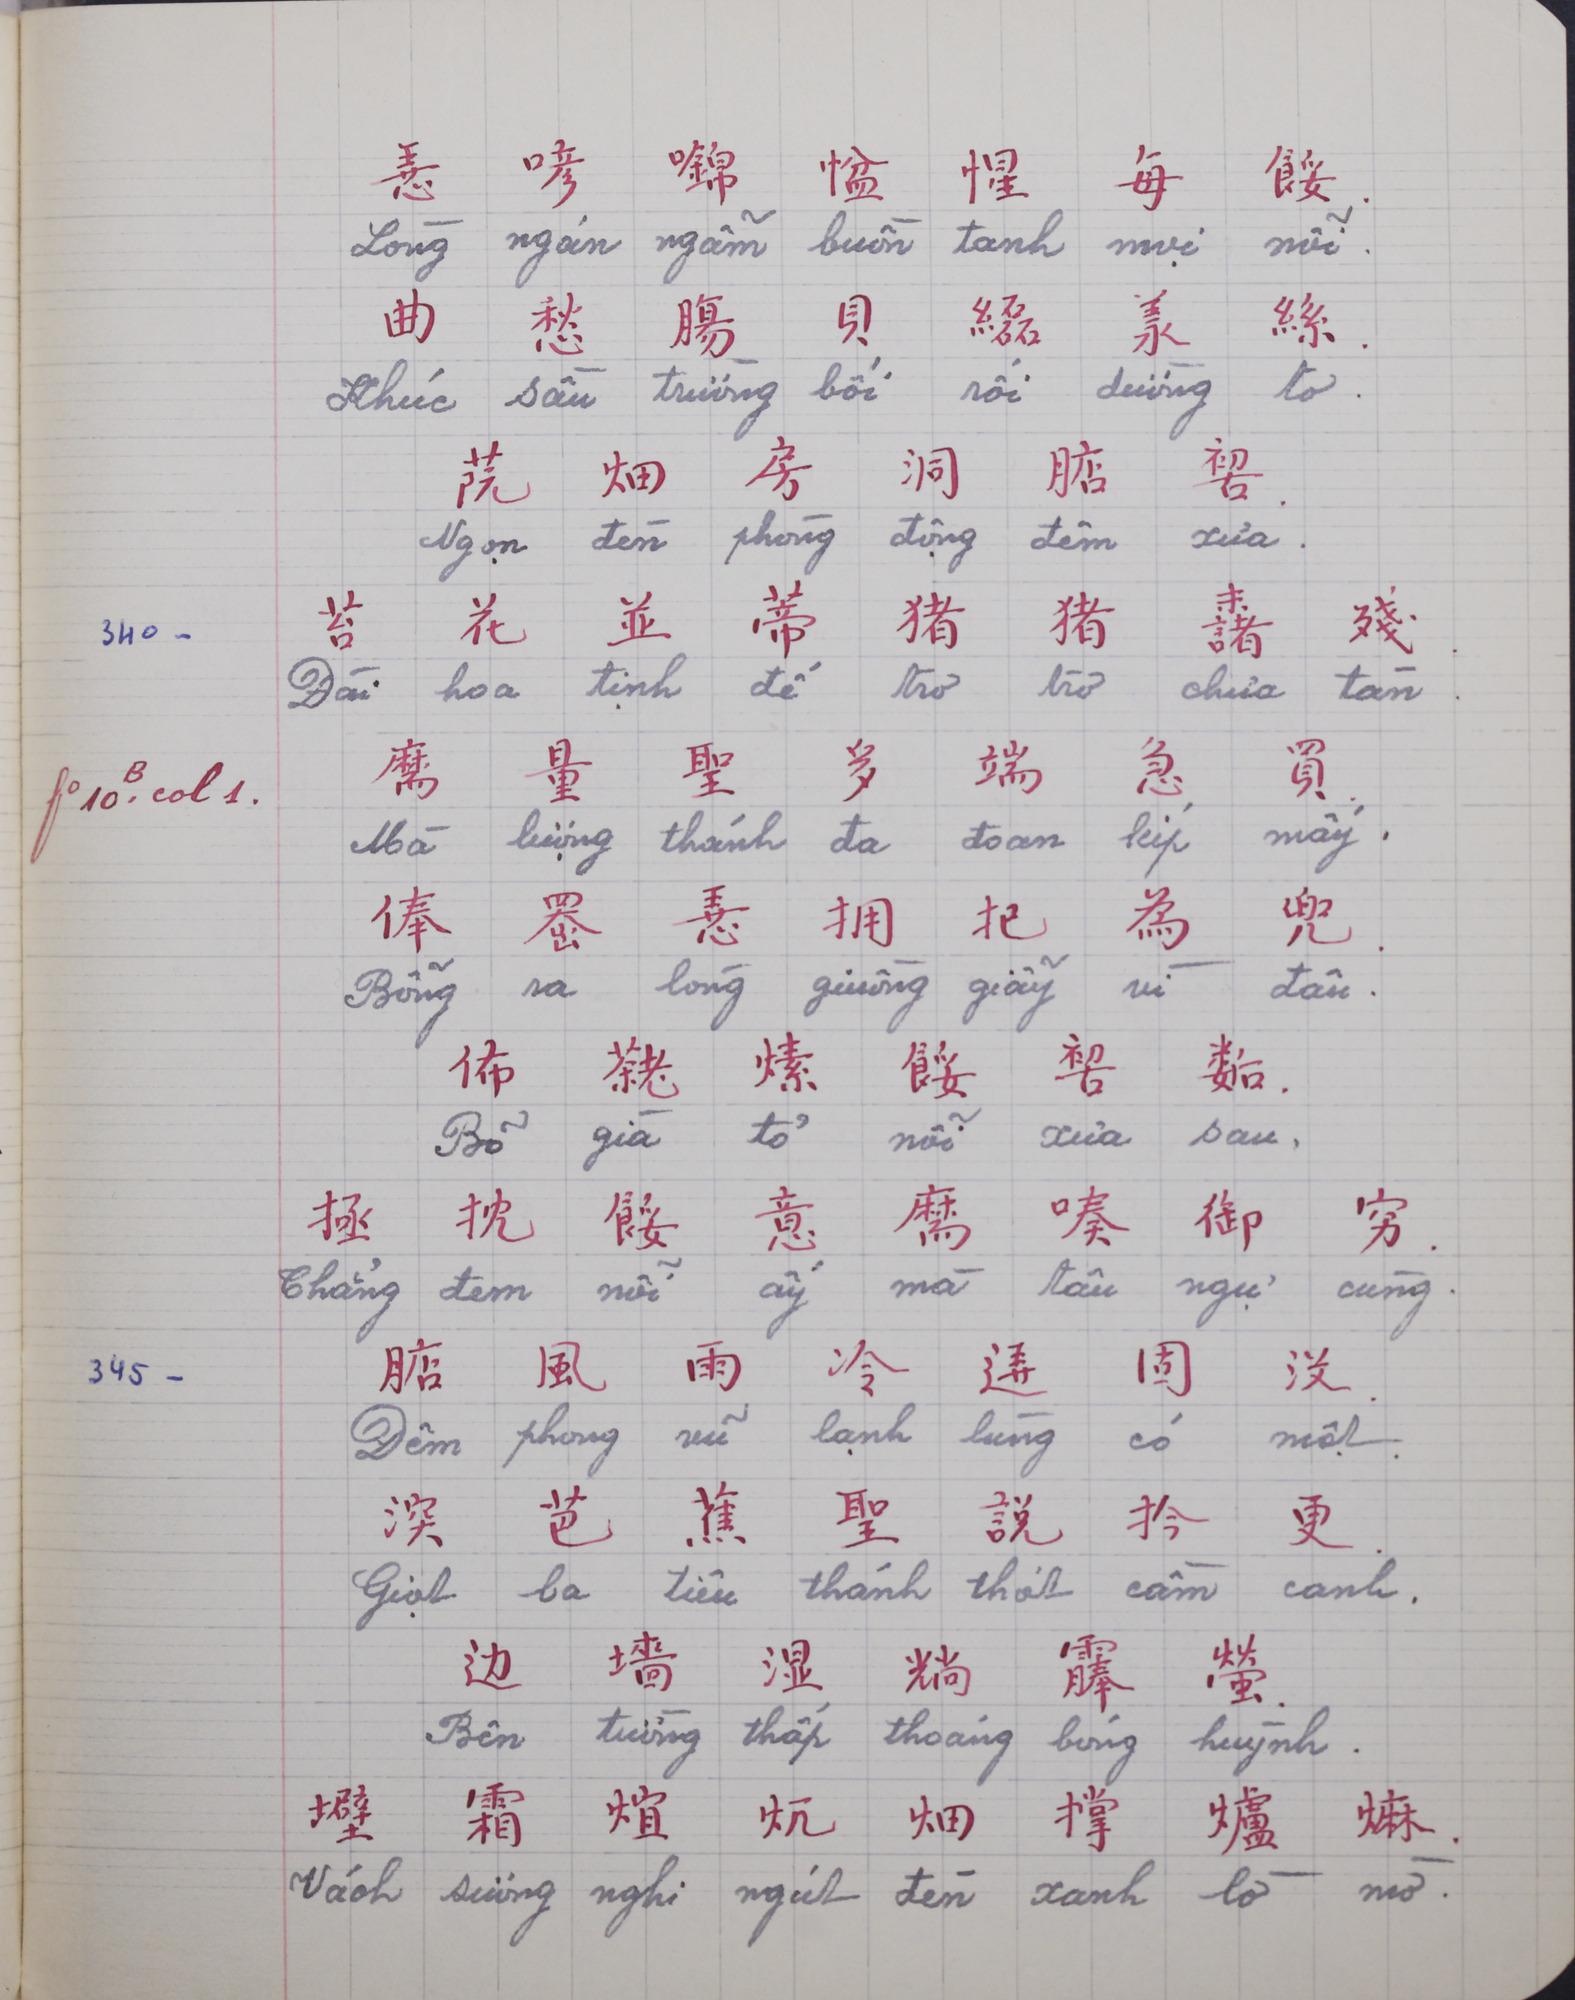 𢚸 喭 㘌 㥪 惺 每 餒.
Lòng ngán ngẩm buồn tanh mọi nỗi.
曲 愁 腸 貝 䋘 羕 絲.
Khúc sầu trường bối rối dường tơ.
𦰟 畑 房 洞 𣎀 𠸗.
Ngọn đèn phòng động đêm xưa.
340 - 苔 花 並 蒂 猪 猪 𣗓 殘.
Đài hoa tịnh đế trơ trơ chưa tàn.
fº 10ᴮ. col 1. 麼 量 聖 多 端 急 買.
Mà lượng thánh đa đoan kíp mấy.
俸 𠚢 𢚸 拥 扫 為 兜.
Bỗng ra lòng giuồng giẫy vì đâu.
佈 𦓅 𤐝 餒 𠸗 𡢐.
Bõ già tỏ nỗi xưa sau,
拯 抌 餒 意 麼 嗪 御 穷.
Chẳng đem nỗi ấy mà tâu ngự cùng.
345 - 𣎀 風 雨 冷 𨓡 固 没.
Đêm phong vũ lạnh lùng có một.
湥 芭 蕉 聖 説 扲 更.
Giọt ba tiêu thánh thót cầm canh.
边 墻 湿 𤊡 䨦 螢.
Bên tường thấp thoáng bóng huỳnh.
壁 霜 煊 炕 畑 撑 爐 𤈛.
Vách sương nghi ngút đèn xanh lờ mờ.